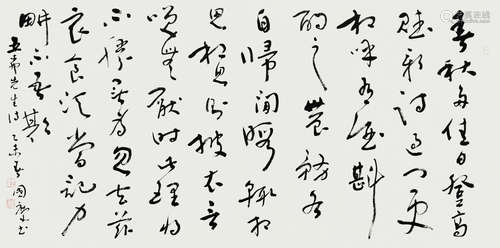 春秋多佳日登高
賦新詩過門更
相呼有酒斟
酌之農務各
自歸閒暇輒相
思相思則披衣言
笑無厭時此理將
不勝無為忽去茲
衣食須當記力
畊不吾欺
先生詩乙未國書